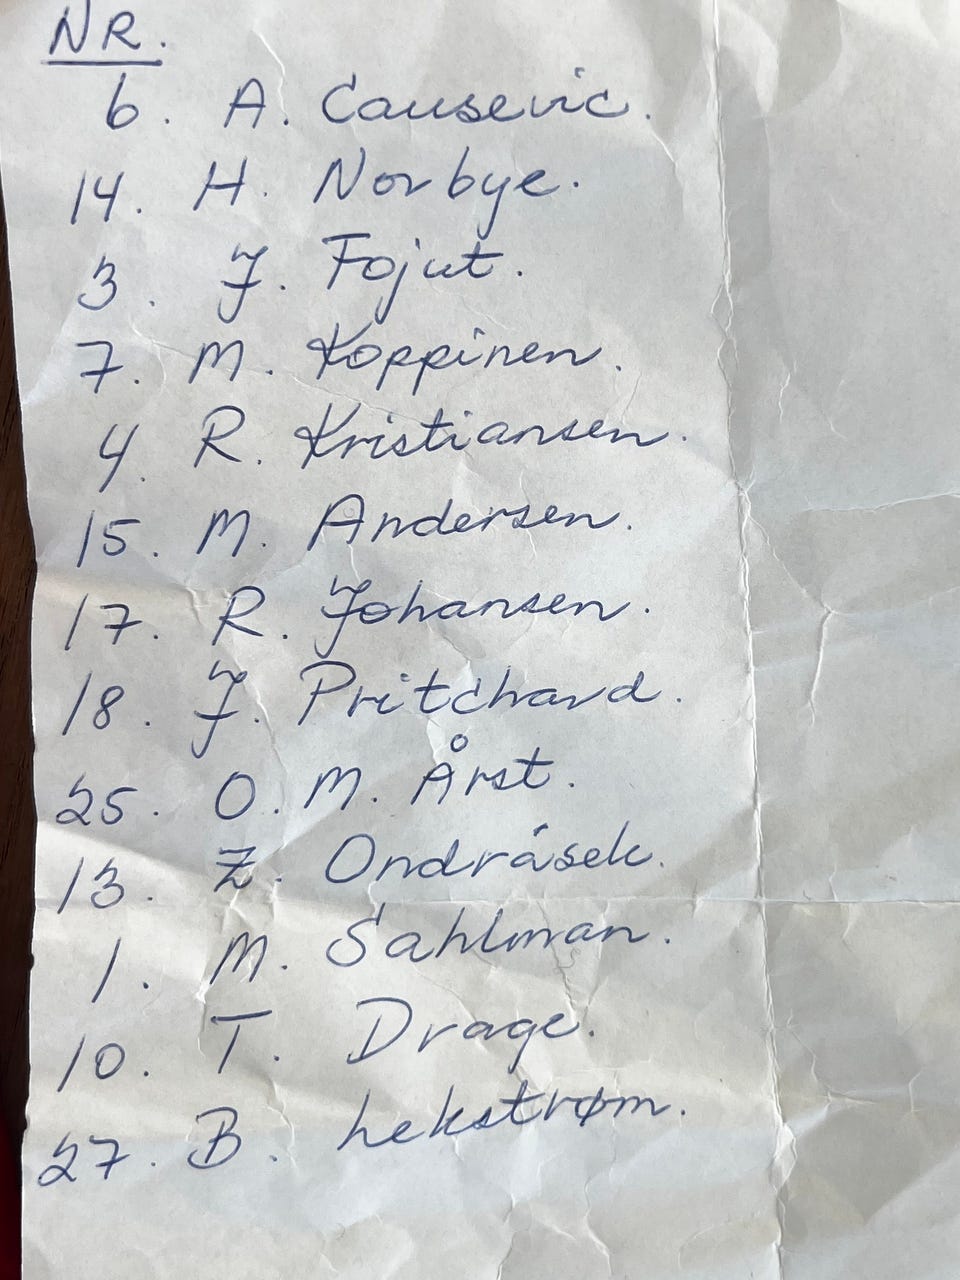 NR.
6. A. Causevic.
14. H. Norbye.
3. J. Fojut.
7. M. Koppinen.
4. R. Kristiansen.
15. M. Andersen.
17. R. Johansen.
18. J. Pritchard.
25. O. M. Årst.
13. Z. Ondrásek.
1. M. Sahlman.
10. T. Drage.
27. B. Lekstrøm.